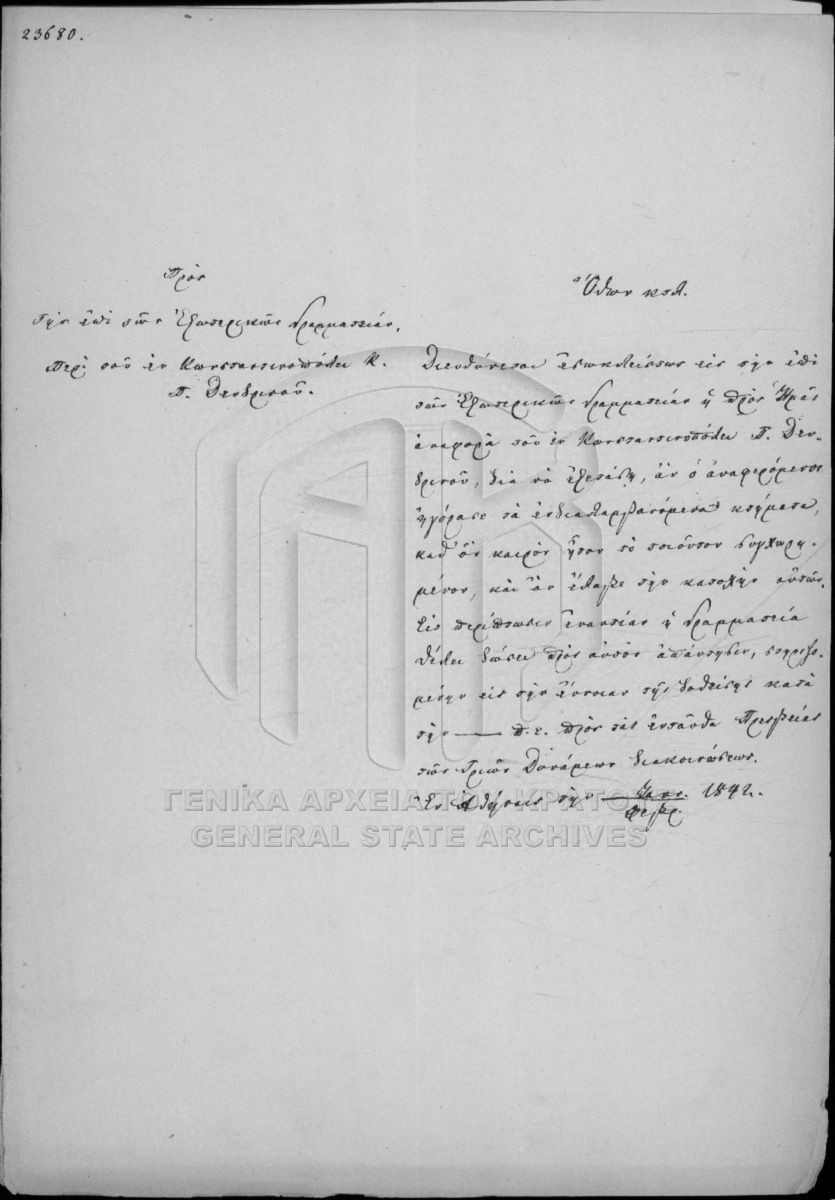 23680.
Πρὸς
τὴν ἐπὶ τῶν Ἐξωτερικῶν Γραμματείαν.
Περὶ τοῦ ἐν Κωνσταντινουπόλει Κ.
Π. Δενδρινοῦ.
Ὄθων κτλ.
Διευθύνεται ἐσωκλείστως εἰς τὴν ἐπὶ
τῶν Ἐξωτερικῶν Γραμματείαν ἡ πρὸς Ἡμᾶς
ἀναφορὰ τοῦ ἐν Κωνσταντινουπόλει Π. Δεν-
δρινοῦ, διὰ νὰ ἐξετάσῃ, ἂν ὁ ἀναφερόμενος
ἠγόρασε τὰ ἐνδιαλαμβανόμενα κτήματα,
καθ' ὃν καιρὸν ἦτον τὸ τοιοῦτον συγχωρη-
μένον, καὶ ἂν ἔλαβε τὴν κατοχὴν αὐτῶν.
Εἰς περίπτωσιν ἐναντίαν ἡ Γραμματεία
θέλει δώσει πρὸς αὐτὸν ἀπάντησιν, στηριζο-
μένην εἰς τὴν ἔννοιαν τῆς δοθείσης κατὰ
τὴν —— π.ἔ. πρὸς τὰς ἐνταῦθα Πρεσβείας
τῶν Τριῶν Δυνάμεων διακοινώσεως.
Ἐν Ἀθήναις τὴν —— Ἰαν. 1842.
Φεβρ.
ΓΕΝΙΚΑ ΑΡΧΕΙΑ ΤΟΥ ΚΡΑΤΟΥΣ
GENERAL STATE ARCHIVES